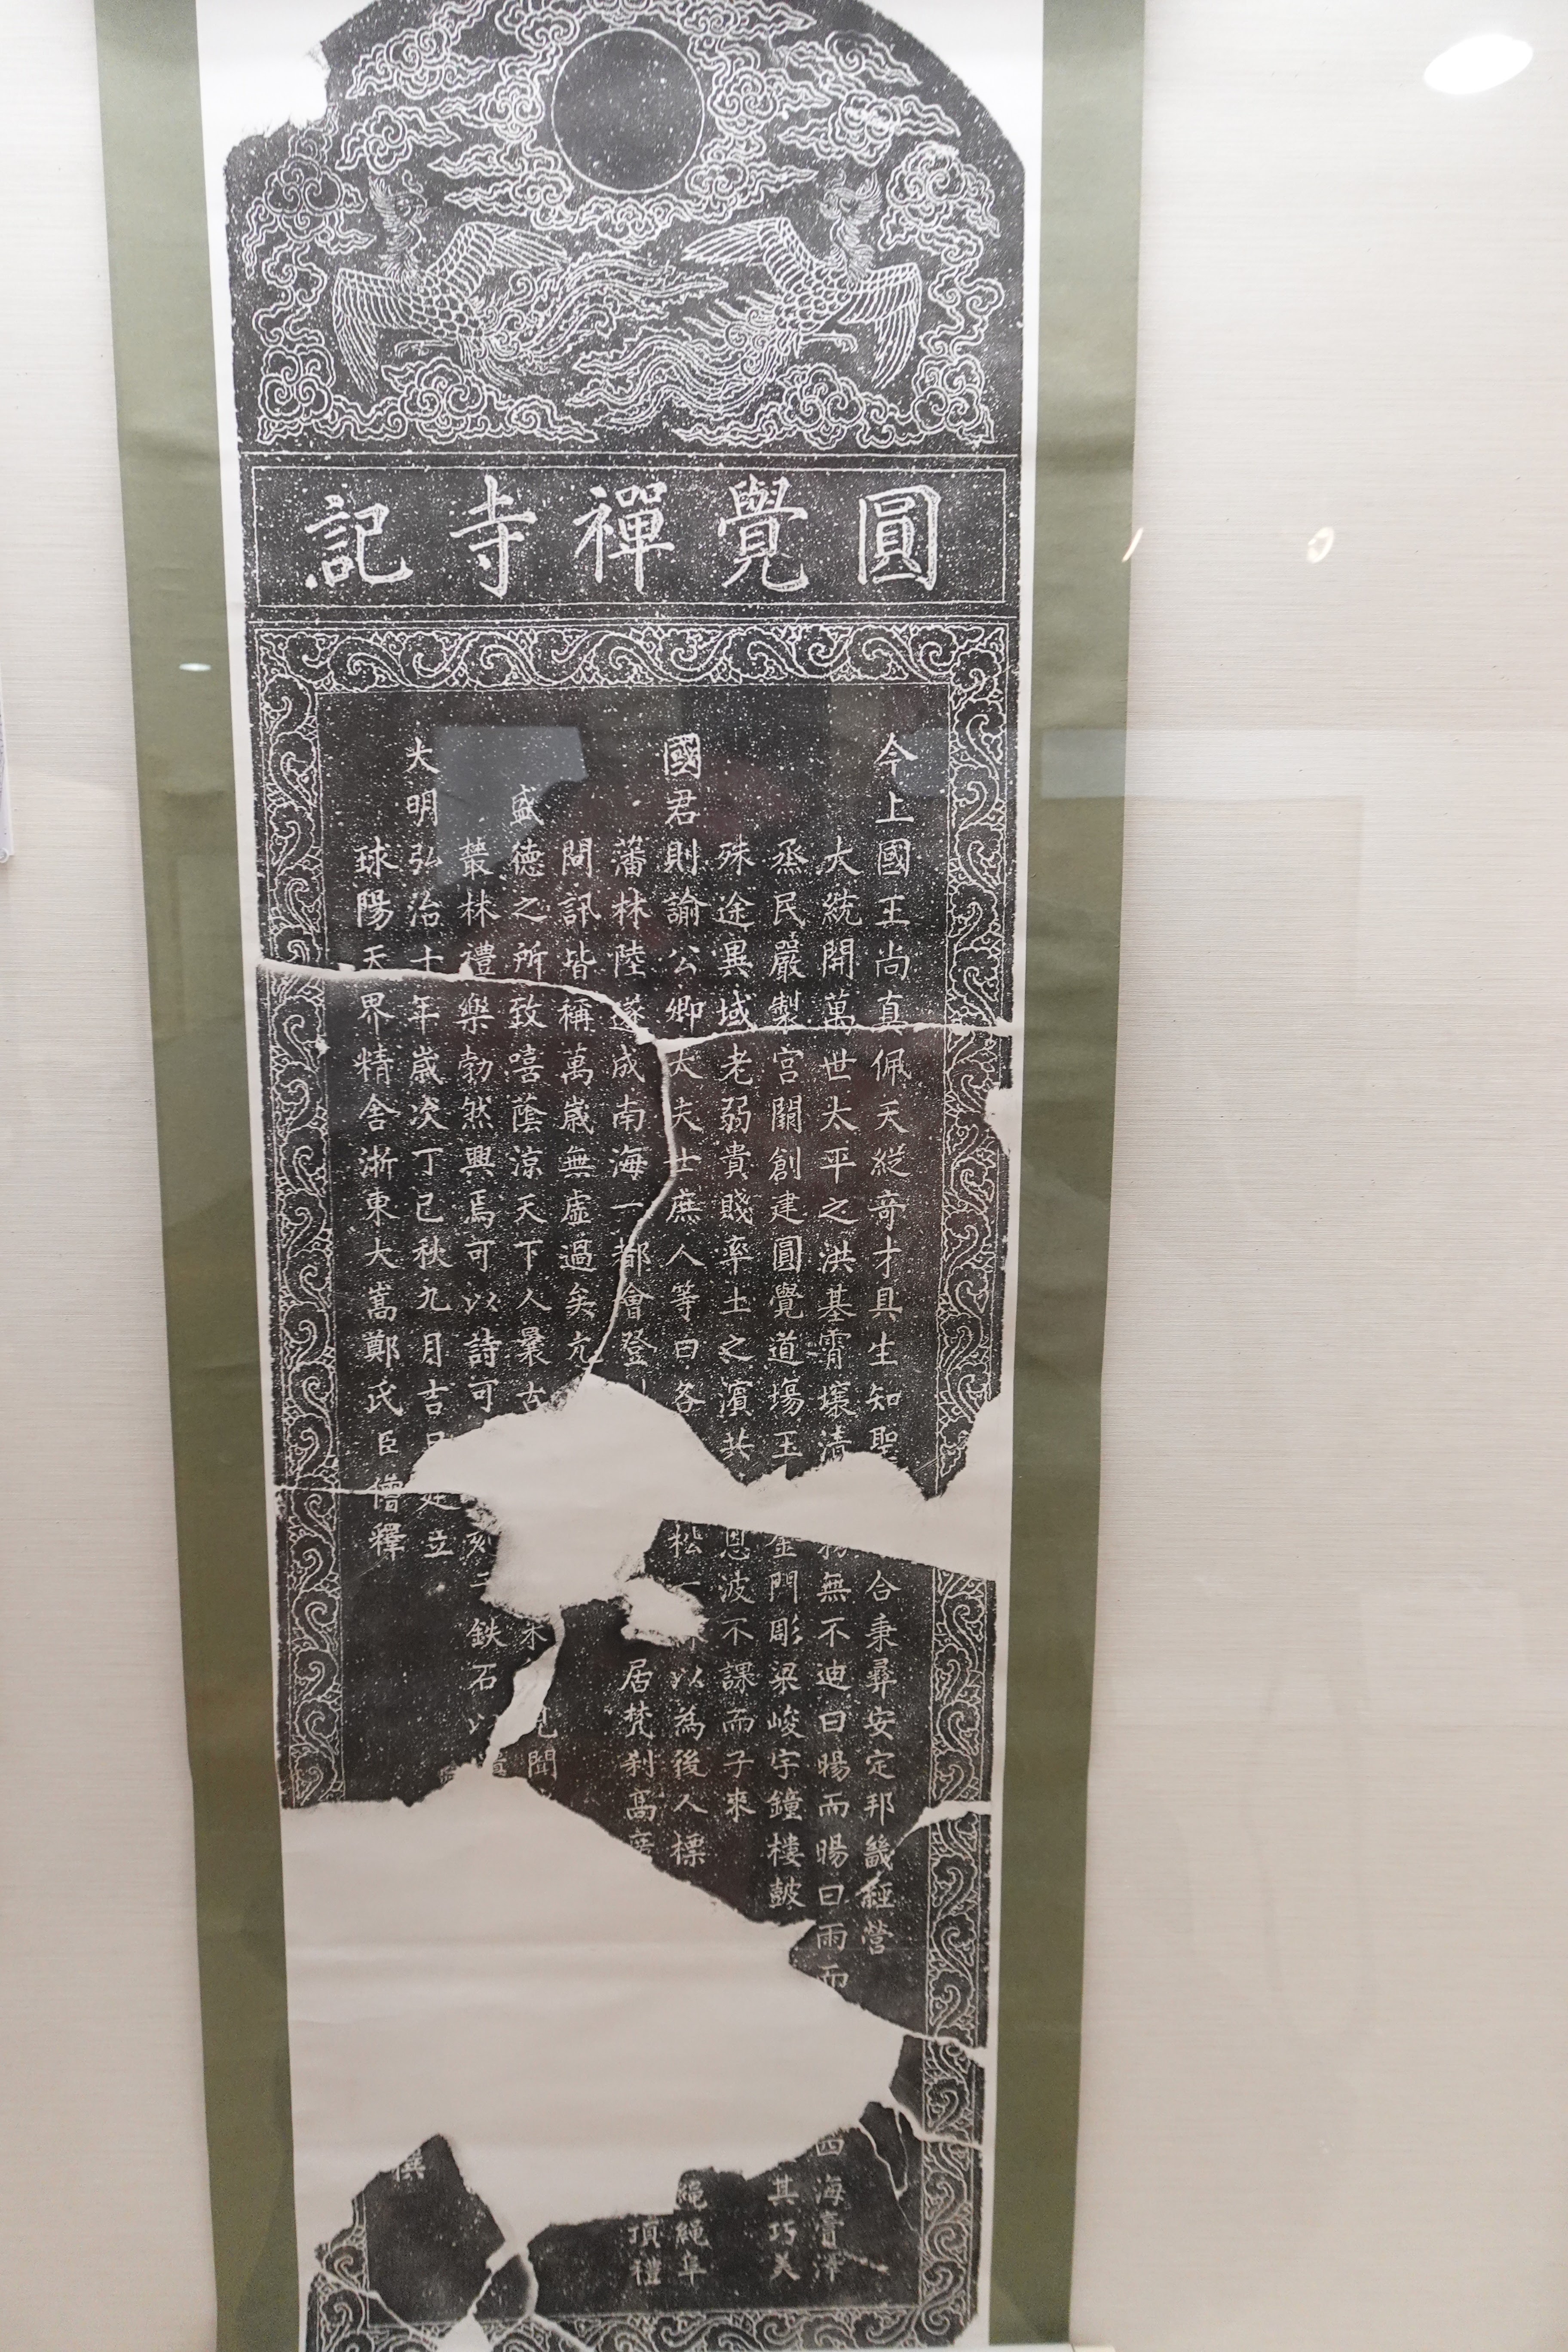 圓覺禪寺記
今上國王尚真佩天縱奇才具生知聖合秉彝安定邦畿經營
大統開萬世太平之洪基霄壤清無不迪曰暘而暘曰雨而四海膏澤
烝民嚴製宮闕創建圓覺道場玉金門彫梁峻宇鐘樓皷其巧美
殊途異域老弱貴賤率土之濱共恩波不課而子來
國君則諭公卿大夫士庶人等曰各松一以為後人標繩繩阜
藩林陸遂成南海一都會登居梵刹高頂禮
問訊皆稱萬歲無虛過矣亢
盛德之所致嘻蔭涼天下人曩古未見聞
叢林禮樂勃然興焉可以詩可刻于鉄石以
大明弘治十年歲次丁巳秋九月吉日建立
球陽天界精舍浙東大嵩鄭氏臣僧釋撰